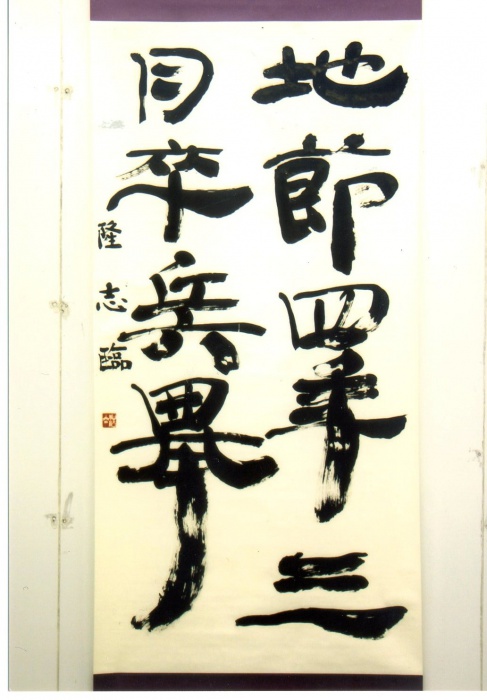 地節四年三
月卒兵舉
隆志臨